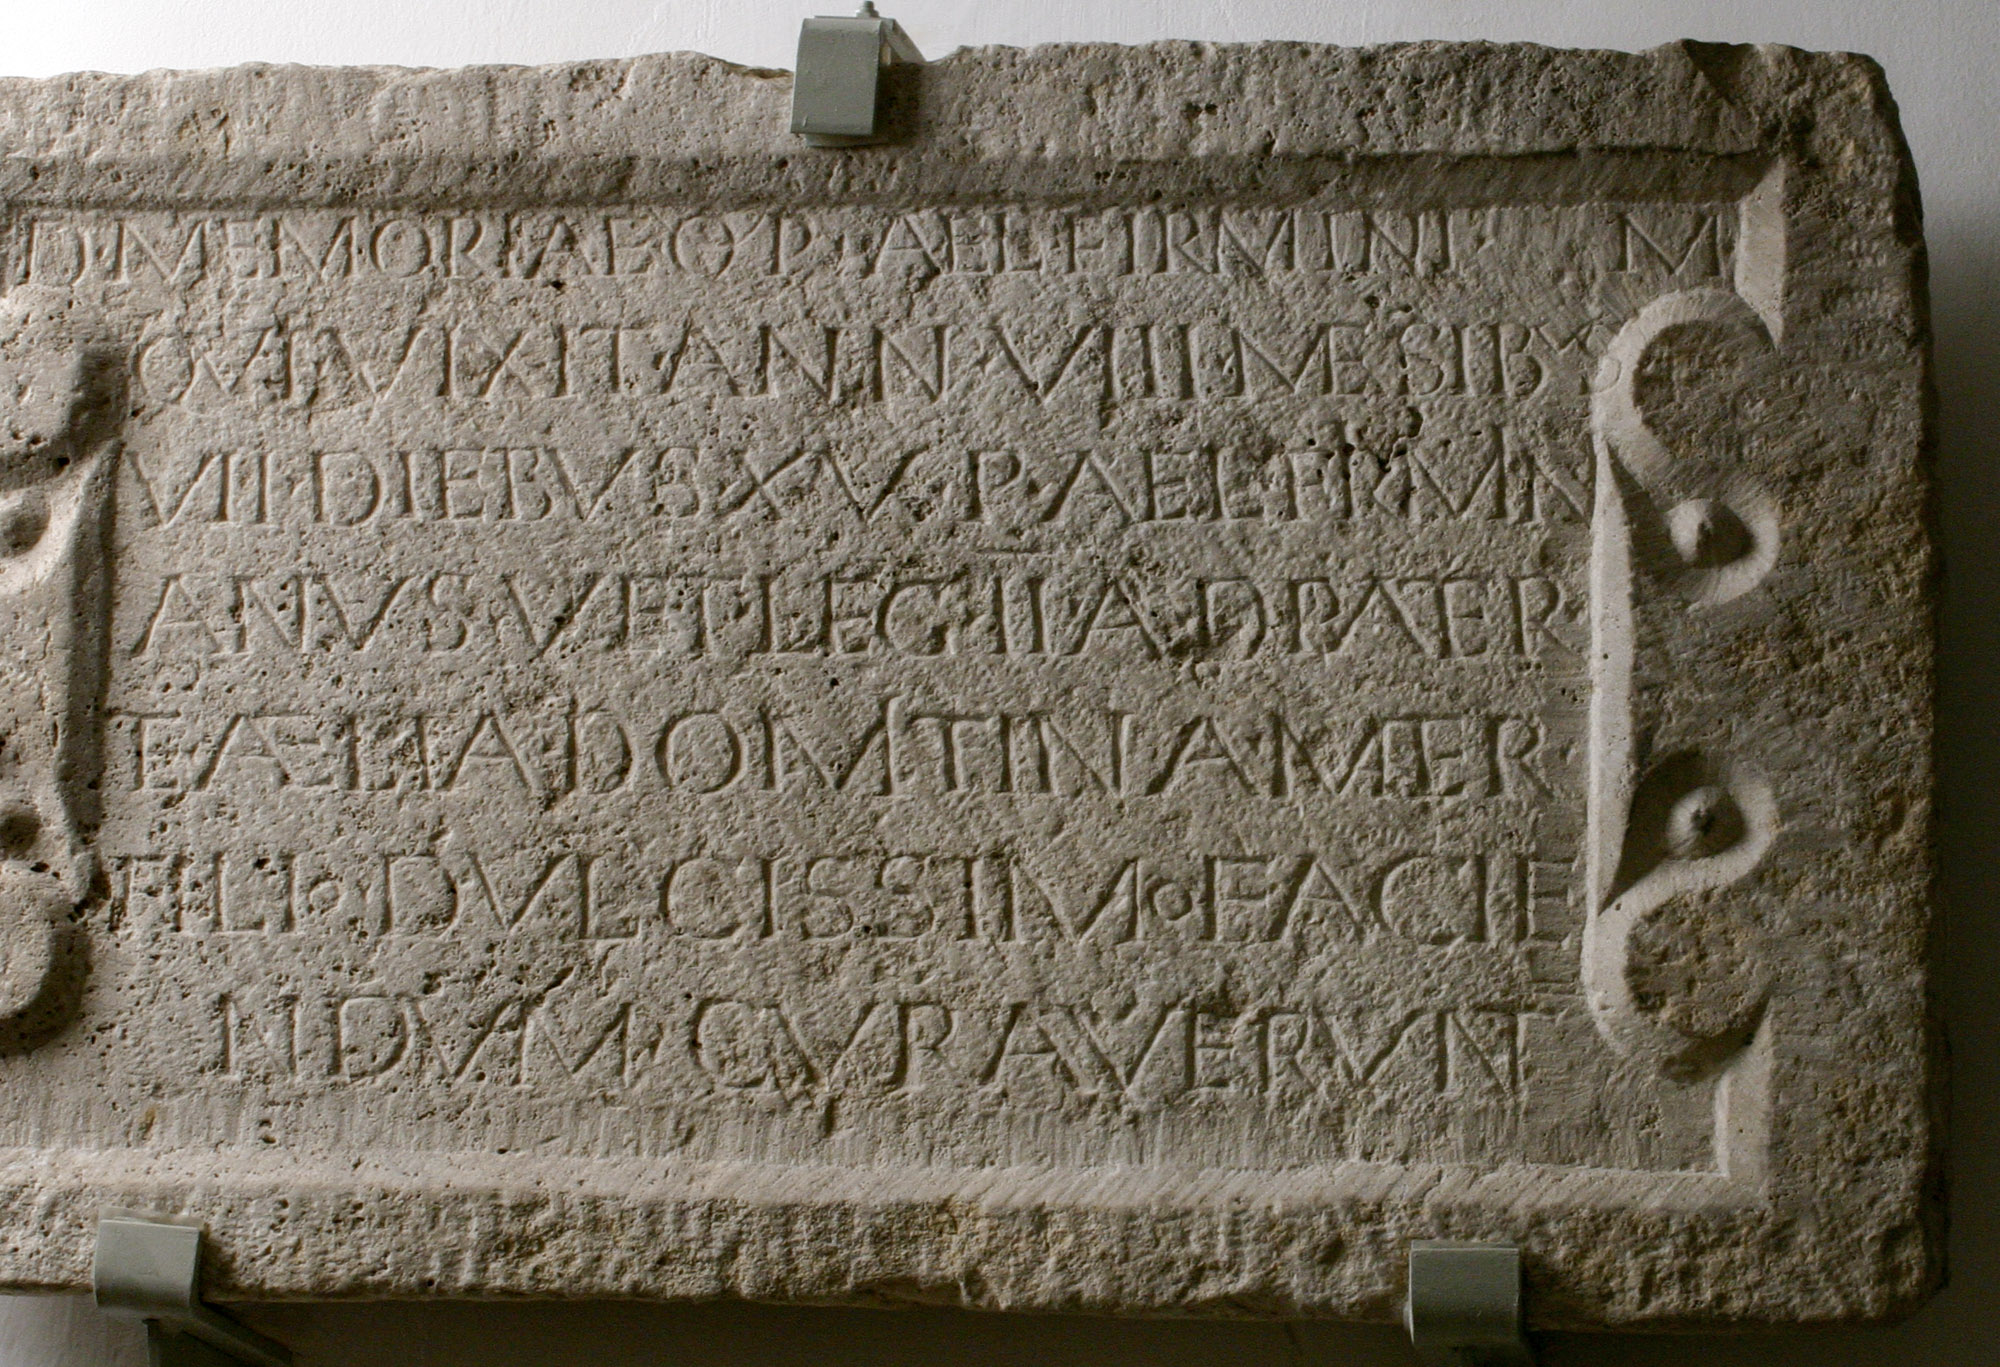 D·MEMORIAE·Q·P·AEL·FIRMINI· M
QVI·VIXIT·ANN·VIII·MESIBV
VII·DIEBVS XV P·AEL·FIRMIN
ANVS·VET·LEG·II·AD·PATER
ET AELIA DOMITINA MATER
FILIO DVLCISSIMO FACIE
NDVM·CVRAVERVNT